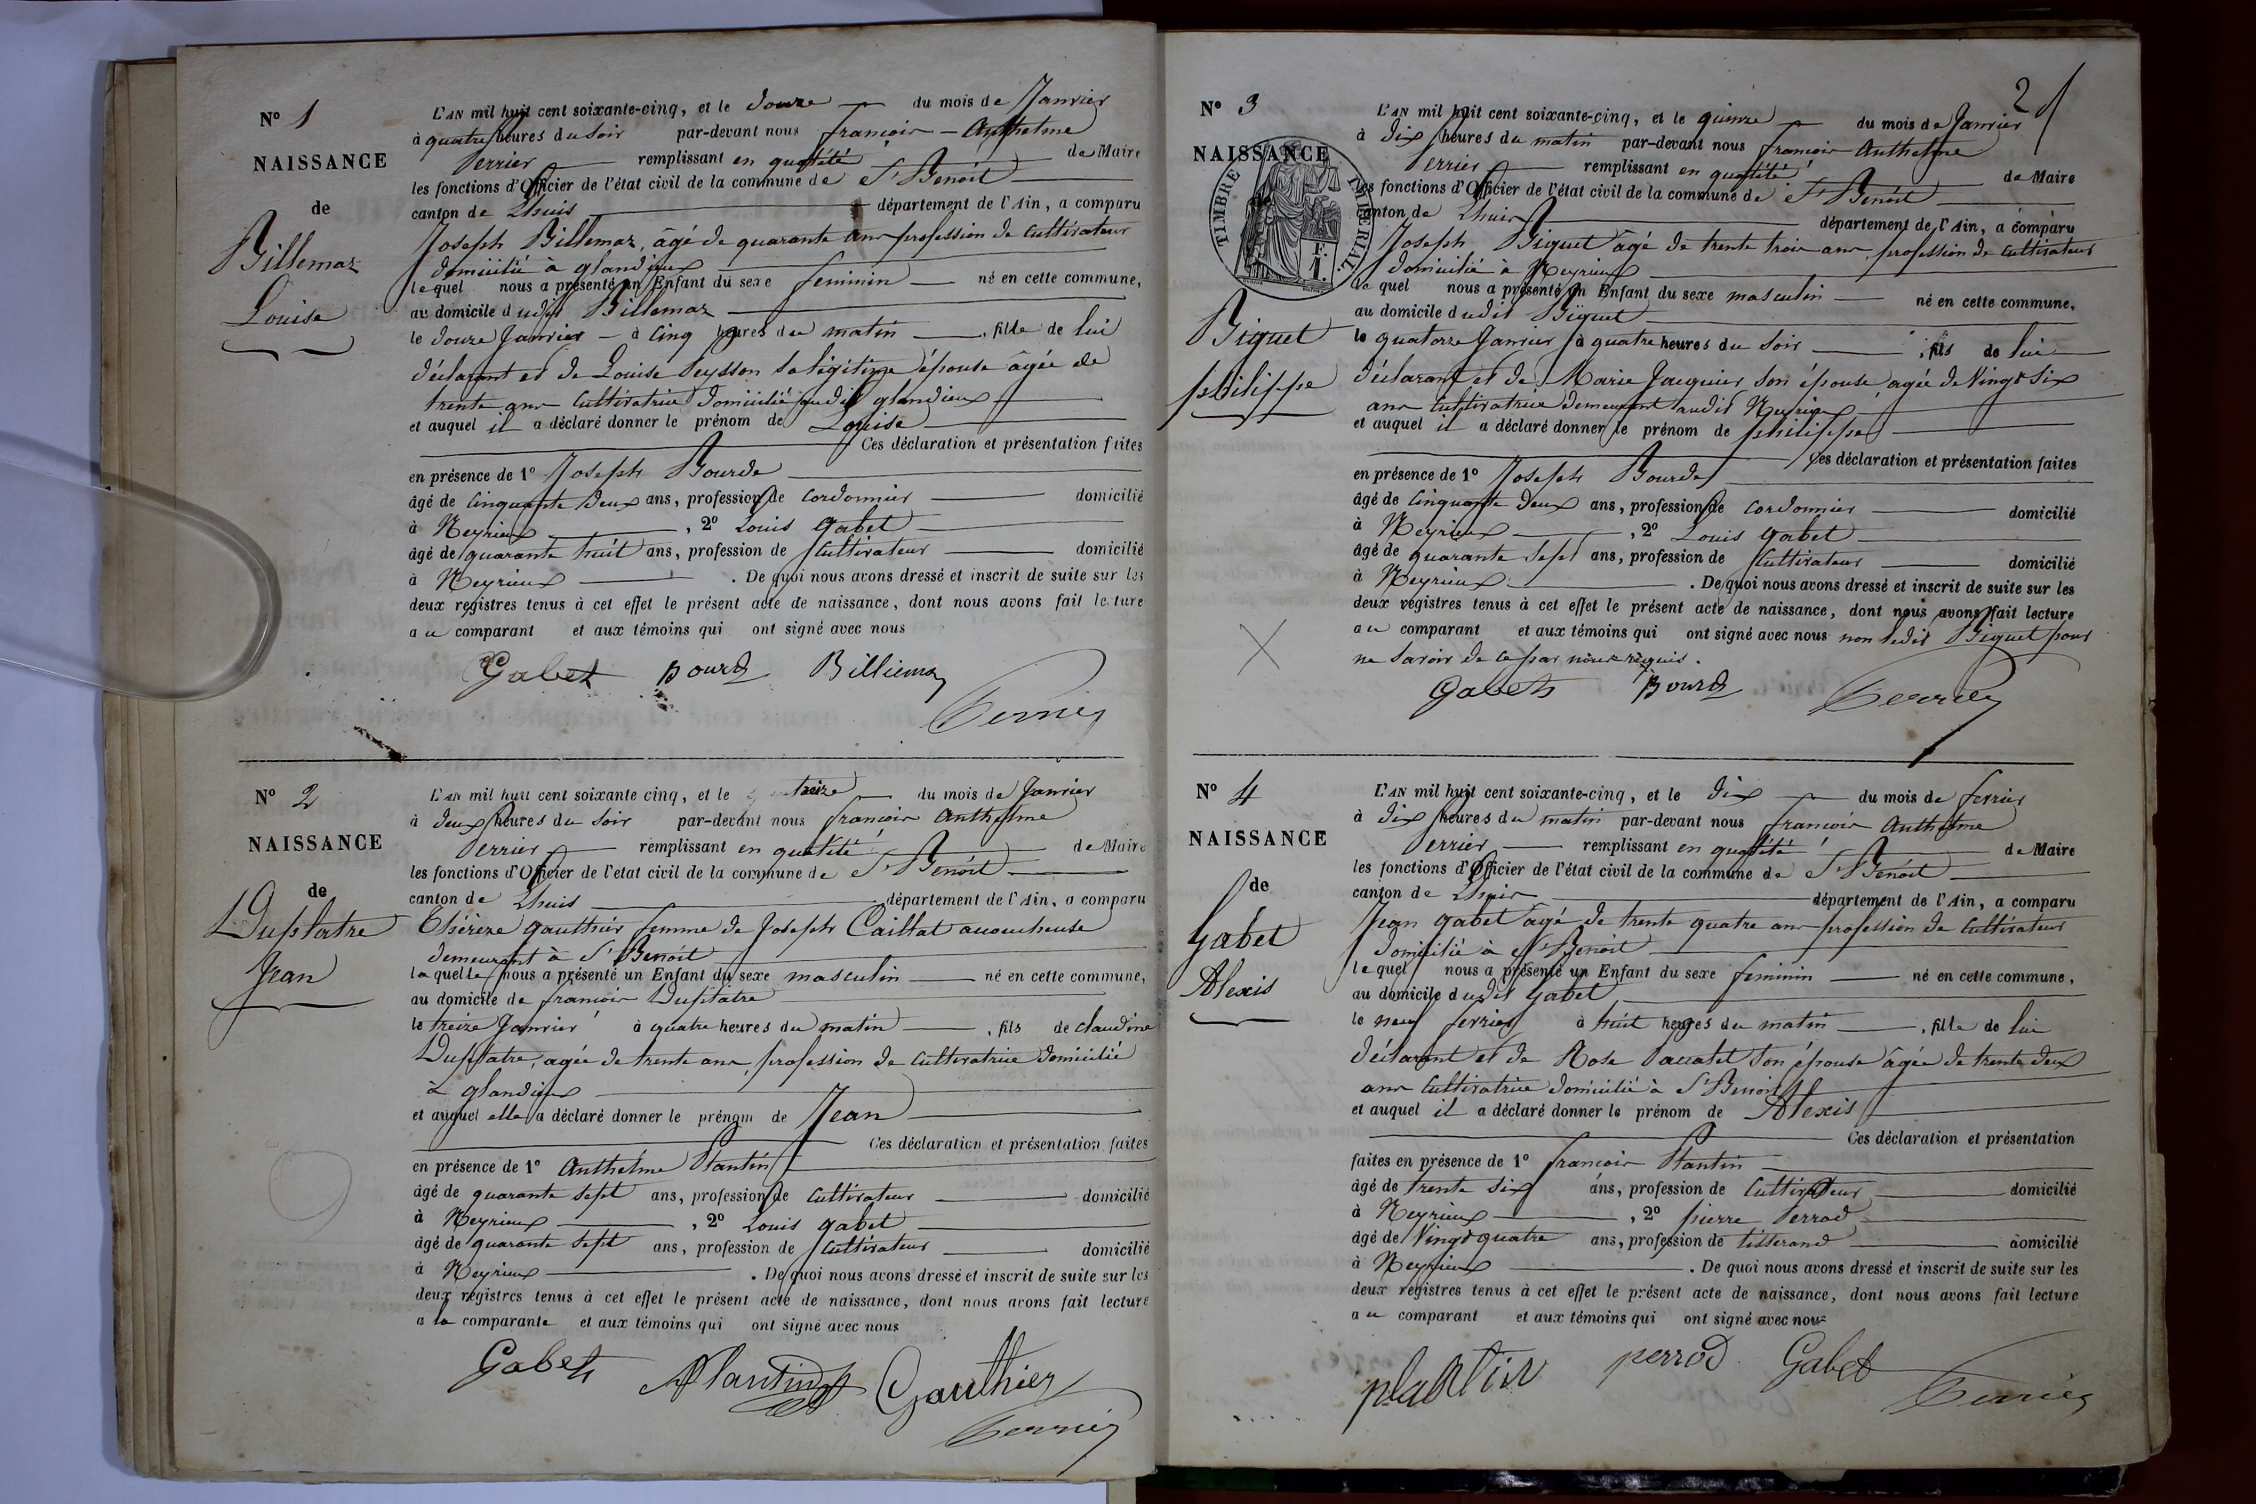 N° 1
NAISSANCE
de
Billemaz
Louise
L'AN mil huit cent soixante-cinq, et le douze du mois de Janvier
à quatre heures du soir par-devant nous françois - Anthelme
Perrier remplissant en quatité de Maire
les fonctions d'Officier de l'état civil de la commune de St Benoit
canton de Lhuis département de l'Ain, a comparu
Joseph Billemaz, âgé de quarante ans profession de cultivateur
domicilié à glandieux
lequel nous a présenté un Enfant du sexe feminin né en cette commune,
au domicile dudit Billemaz
le douze Janvier à cinq heures du matin, fille de lui
déclarant et de Louise Peysson sa légitime épouse âgée de
trente ans cultivatrice domicilié audit glandieux
et auquel il a déclaré donner le prénom de Louise
Ces déclaration et présentation faites
en présence de 1° Joseph Bourde
âgé de cinquante deux ans, profession de cordonnier domicilié
à Meyrieux, 2° Louis gabet
âgé de quarante huit ans, profession de cultivateur domicilié
à Meyrieux. De quoi nous avons dressé et inscrit de suite sur les
deux registres tenus à cet effet le présent acte de naissance, dont nous avons fait lecture
au comparant et aux témoins qui ont signé avec nous
Gabet Bourd Billiema
Perrier
N° 2
NAISSANCE
de
Duplatre
Jean
L'AN mil huit cent soixante cinq, et le treize du mois de Janvier
à deux heures du soir par-devant nous françois Anthelme
Perrier remplissant en quatité de Maire
les fonctions d'Officier de l'etat civil de la commune de St Benoit
canton de Lhuis département de l'Ain, a comparu
Thérèze gauthier femme de Joseph Caillat acoucheuse
demeurant à St Benoit
laquelle nous a présenté un Enfant du sexe masculin né en cette commune,
au domicile de françois Duplatre
le treize Janvier à quatre heures du matin, fils de claudine
Duplatre, agée de trente ans, profession de cultivatrice domicilié
à glandieux
et auquel elle a déclaré donner le prénom de Jean
Ces déclaration et présentation faites
en présence de 1° Anthelme Plantin
âgé de quarante sept ans, profession de cultivateur domicilié
à Meyrieux, 2° Louis gabet
âgé de quarante sept ans, profession de cultivateur domicilié
à Meyrieux. De quoi nous avons dressé et inscrit de suite sur les
deux registres tenus à cet effet le présent acte de naissance, dont nous avons fait lecture
a la comparante et aux témoins qui ont signé avec nous
Gabet Plantin Gauthier
Perrier
2
N° 3
NAISSANCE
de
TIMBRE IMPÉRIAL
F.
1.
Biguet
philippe
L'AN mil huit cent soixante-cinq, et le quinze du mois de Janvier
à dix heures du matin par-devant nous françois Anthelme
Perrier remplissant en quatité de Maire
les fonctions d'Officier de l'état civil de la commune de St Benoit
canton de Lhuis département de l'Ain, a comparu
Joseph Biguet âgé de trente trois ans, profession de cultivateur
domicilié à Meyrieux
lequel nous a présenté un Enfant du sexe masculin né en cette commune.
au domicile dudit Biguet
le quatorze Janvier à quatre heures du soir, fils de lui
déclarant et de Marie Jacquier son épouse agée de vingt six
ans cultivatrice demeurant audit Meyrieux
et auquel il a déclaré donner le prénom de philippe
Ces déclaration et présentation faites
en présence de 1° Joseph Bourde
âgé de cinquante deux ans, profession de cordonnier domicilié
à Meyrieux, 2° Louis gabet
âgé de quarante sept ans, profession de cultivateur domicilié
à Meyrieux. De quoi nous avons dressé et inscrit de suite sur les
deux registres tenus à cet effet le présent acte de naissance, dont nous avons fait lecture
au comparant et aux témoins qui ont signé avec nous non ledit Biguet pour
ne savoir de ce par nous requis.
Gabet Bourd Perrier
N° 4
NAISSANCE
de
Gabet
Alexis
L'AN mil huit cent soixante-cinq, et le dix du mois de fevrier
à dix heures du matin par-devant nous françois Anthelme
Perrier remplissant en quatité de Maire
les fonctions d'Officier de l'état civil de la commune de St Benoit
canton de Lhuis département de l'Ain, a comparu
Jean gabet âgé de trente quatre ans profession de cultivateur
domicilié à St Benoit
lequel nous a présenté un Enfant du sexe feminin né en cette commune,
au domicile dudit gabet
le neuf fevrier à huit heures du matin, fille de lui
déclarant et de Rose Paccalet son épouse âgée de trente deux
ans cultivatrice domicilié à St Benoit
et auquel il a déclaré donner le prénom de Alexis
Ces déclaration et présentation
faites en présence de 1° françois Plantin
âgé de trente six ans, profession de cultivateur domicilié
à Meyrieux, 2° pierre Perrod
âgé de vingt quatre ans, profession de tisserand domicilié
à Meyrieux. De quoi nous avons dressé et inscrit de suite sur les
deux registres tenus à cet effet le présent acte de naissance, dont nous avons fait lecture
au comparant et aux témoins qui ont signé avec nous
plantin perrod Gabet
Perrier